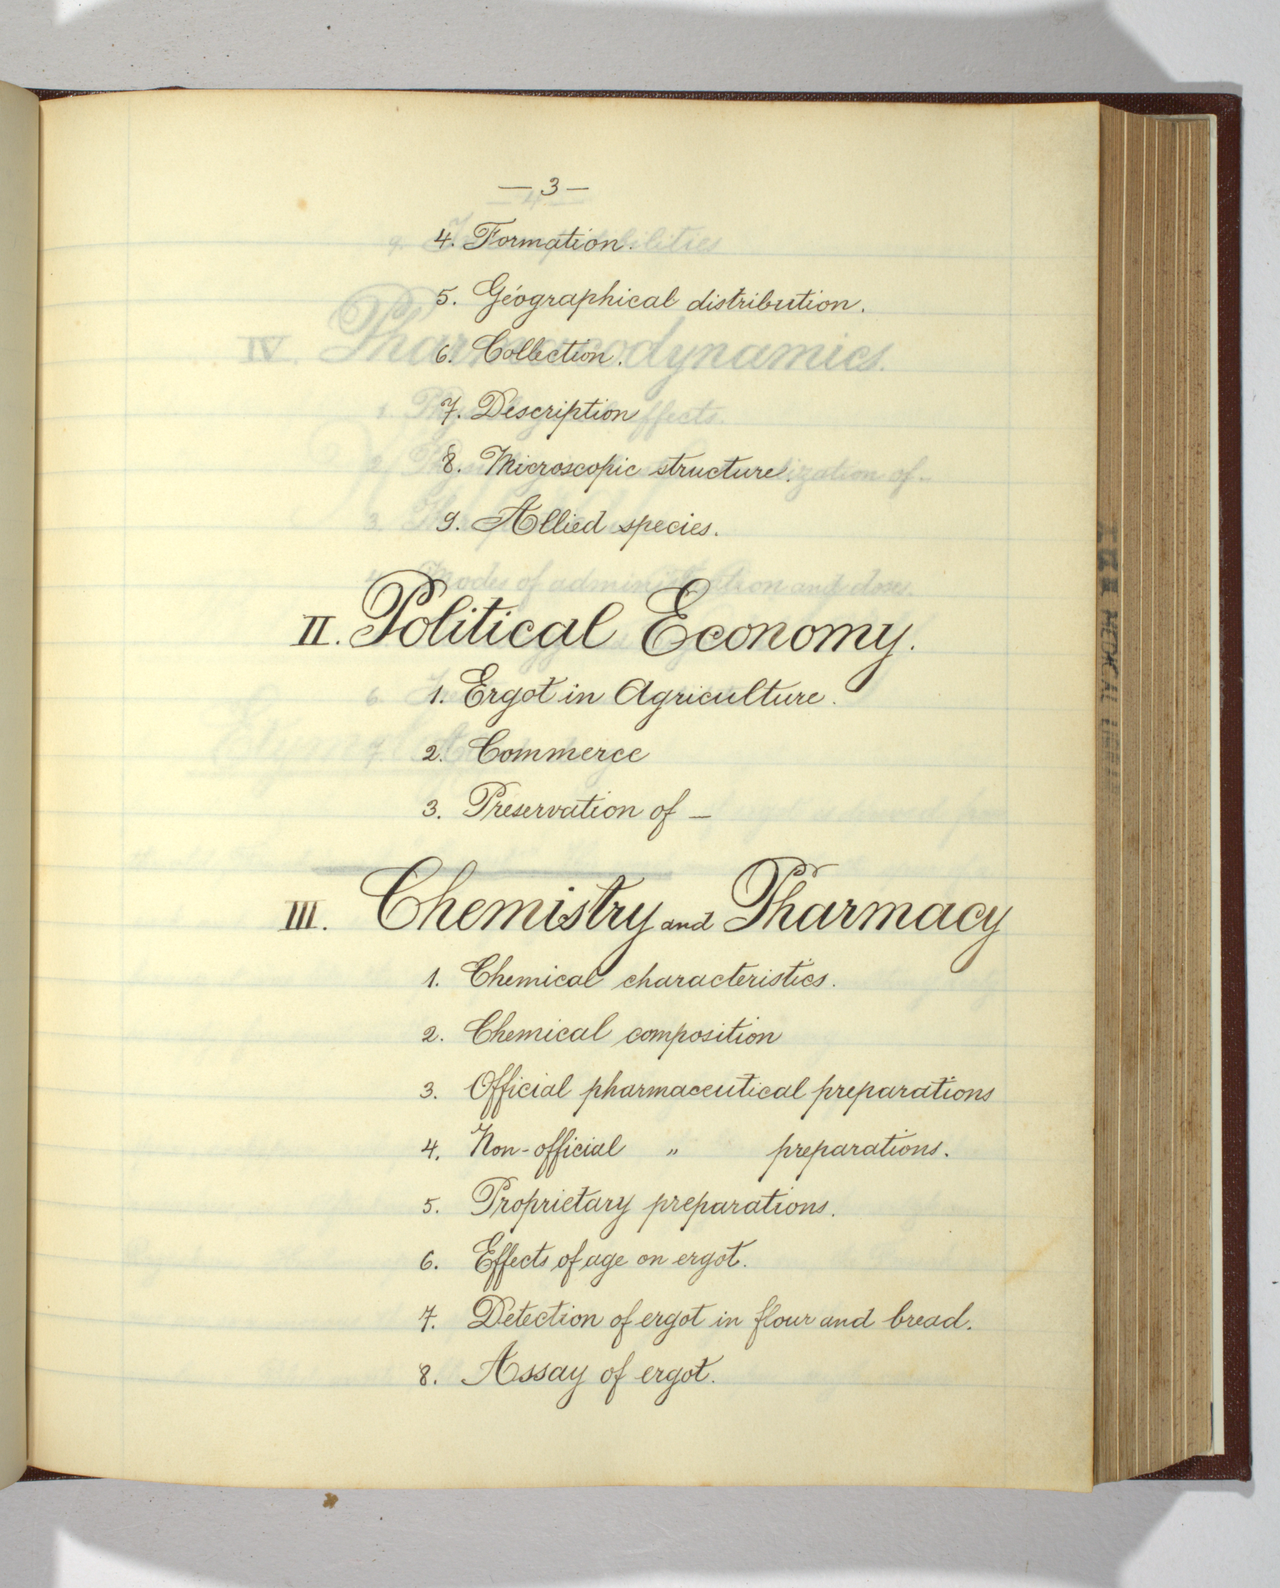 — 3 —
4. Formation.
5. Geographical distribution.
6. Collection.
7. Description
8. Microscopic structure.
9. Allied species.
II. Political Economy.
1. Ergot in Agriculture.
2. Commerce
3. Preservation of —
III. Chemistry and Pharmacy
1. Chemical characteristics.
2. Chemical composition
3. Official pharmaceutical preparations
4. Non-official " preparations.
5. Proprietary preparations.
6. Effects of age on ergot.
7. Detection of ergot in flour and bread.
8. Assay of ergot.
MEDICAL